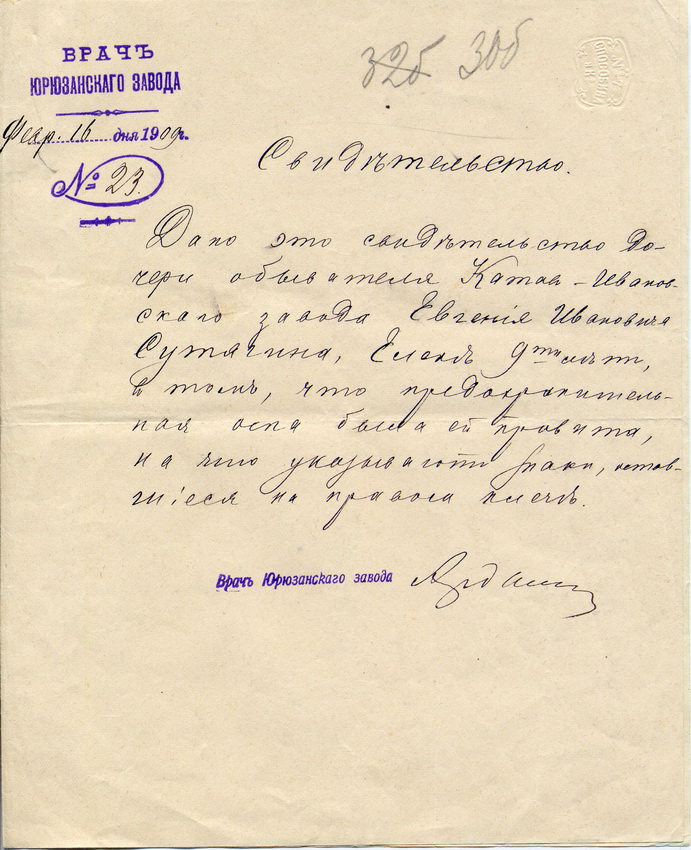 ВРАЧЪ
ЮРЮЗАНСКАГО ЗАВОДА
Февр. 16 дня 1909 г.
№ 23.
326 306
Свидѣтельство.
Дано это свидѣтельство до-
чери обывателя Катав-Иванов-
скаго завода Евгенія Ивановича
Сутягина, Еленѣ 9ти лѣтъ,
в томъ, что предохранитель-
ная оспа была ей привита,
на что указываютъ знаки, остав-
шіеся на правом плечѣ.
Врачъ Юрюзанскаго завода